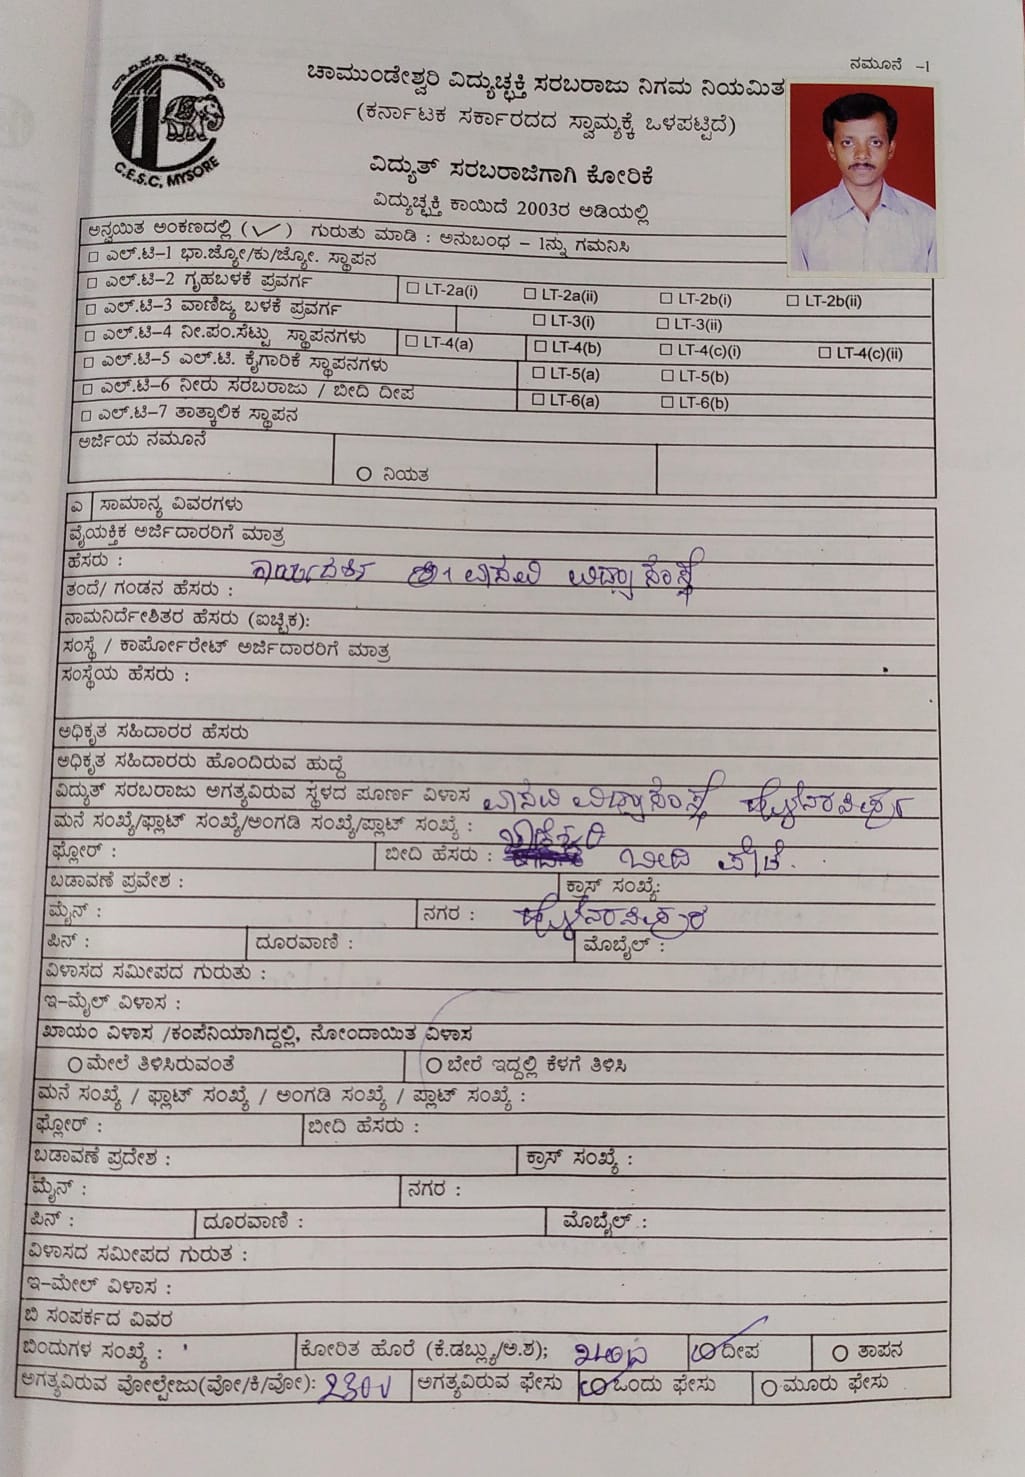 ನಮೂನೆ -1
ಚಾ.ವಿ.ಸ.ನಿ. ಮೈಸೂರು
C.E.S.C. MYSORE
ಚಾಮುಂಡೇಶ್ವರಿ ವಿದ್ಯುಚ್ಛಕ್ತಿ ಸರಬರಾಜು ನಿಗಮ ನಿಯಮಿತ
(ಕರ್ನಾಟಕ ಸರ್ಕಾರದದ ಸ್ವಾಮ್ಯಕ್ಕೆ ಒಳಪಟ್ಟಿದೆ)
ವಿದ್ಯುತ್ ಸರಬರಾಜಿಗಾಗಿ ಕೋರಿಕೆ
ವಿದ್ಯುಚ್ಛಕ್ತಿ ಕಾಯಿದೆ 2003ರ ಅಡಿಯಲ್ಲಿ
ಅನ್ವಯಿತ ಅಂಕಣದಲ್ಲಿ (✓) ಗುರುತು ಮಾಡಿ : ಅನುಬಂಧ – 1ನ್ನು ಗಮನಿಸಿ
□ ಎಲ್.ಟಿ–1 ಭಾ.ಜ್ಯೋ/ಕು/ಜ್ಯೋ. ಸ್ಥಾಪನ
□ ಎಲ್.ಟಿ–2 ಗೃಹಬಳಕೆ ಪ್ರವರ್ಗ □ LT-2a(i) □ LT-2a(ii) □ LT-2b(i) □ LT-2b(ii)
□ ಎಲ್.ಟಿ–3 ವಾಣಿಜ್ಯ ಬಳಕೆ ಪ್ರವರ್ಗ □ LT-3(i) □ LT-3(ii)
□ ಎಲ್.ಟಿ–4 ನೀ.ಪಂ.ಸೆಟ್ಟು ಸ್ಥಾಪನಗಳು □ LT-4(a) □ LT-4(b) □ LT-4(c)(i) □ LT-4(c)(ii)
□ ಎಲ್.ಟಿ–5 ಎಲ್.ಟಿ. ಕೈಗಾರಿಕೆ ಸ್ಥಾಪನಗಳು □ LT-5(a) □ LT-5(b)
□ ಎಲ್.ಟಿ–6 ನೀರು ಸರಬರಾಜು / ಬೀದಿ ದೀಪ □ LT-6(a) □ LT-6(b)
□ ಎಲ್.ಟಿ–7 ತಾತ್ಕಾಲಿಕ ಸ್ಥಾಪನ
ಅರ್ಜಿಯ ನಮೂನೆ
O ನಿಯತ
ಎ ಸಾಮಾನ್ಯ ವಿವರಗಳು
ವೈಯಕ್ತಿಕ ಅರ್ಜಿದಾರರಿಗೆ ಮಾತ್ರ
ಹೆಸರು : ಕಾರ್ಯದರ್ಶಿ ಶ್ರೀ ವಾಸವಿ ವಿದ್ಯಾ ಸಂಸ್ಥೆ
ತಂದೆ/ ಗಂಡನ ಹೆಸರು :
ನಾಮನಿರ್ದೇಶಿತರ ಹೆಸರು (ಐಚ್ಛಿಕ):
ಸಂಸ್ಥೆ / ಕಾರ್ಪೋರೇಟ್ ಅರ್ಜಿದಾರರಿಗೆ ಮಾತ್ರ
ಸಂಸ್ಥೆಯ ಹೆಸರು :
ಅಧಿಕೃತ ಸಹಿದಾರರ ಹೆಸರು
ಅಧಿಕೃತ ಸಹಿದಾರರು ಹೊಂದಿರುವ ಹುದ್ದೆ
ವಿದ್ಯುತ್ ಸರಬರಾಜು ಅಗತ್ಯವಿರುವ ಸ್ಥಳದ ಪೂರ್ಣ ವಿಳಾಸ ವಾಸವಿ ವಿದ್ಯಾ ಸಂಸ್ಥೆ
ಮನೆ ಸಂಖ್ಯೆ/ಫ್ಲಾಟ್ ಸಂಖ್ಯೆ/ಅಂಗಡಿ ಸಂಖ್ಯೆ/ಪ್ಲಾಟ್ ಸಂಖ್ಯೆ :
ಫ್ಲೋರ್ : ಬೀದಿ ಹೆಸರು : ಬೀದಿ ಪೇಟೆ.
ಬಡಾವಣೆ ಪ್ರವೇಶ : ಕ್ರಾಸ್ ಸಂಖ್ಯೆ:
ಮೈನ್ : ನಗರ :
ಪಿನ್ : ದೂರವಾಣಿ : ಮೊಬೈಲ್ :
ವಿಳಾಸದ ಸಮೀಪದ ಗುರುತು :
ಇ–ಮೈಲ್ ವಿಳಾಸ :
ಖಾಯಂ ವಿಳಾಸ /ಕಂಪೆನಿಯಾಗಿದ್ದಲ್ಲಿ, ನೋಂದಾಯಿತ ವಿಳಾಸ
O ಮೇಲೆ ತಿಳಿಸಿರುವಂತೆ O ಬೇರೆ ಇದ್ದಲ್ಲಿ ಕೆಳಗೆ ತಿಳಿಸಿ
ಮನೆ ಸಂಖ್ಯೆ / ಫ್ಲಾಟ್ ಸಂಖ್ಯೆ / ಅಂಗಡಿ ಸಂಖ್ಯೆ / ಪ್ಲಾಟ್ ಸಂಖ್ಯೆ :
ಫ್ಲೋರ್ : ಬೀದಿ ಹೆಸರು :
ಬಡಾವಣೆ ಪ್ರದೇಶ : ಕ್ರಾಸ್ ಸಂಖ್ಯೆ :
ಮೈನ್ : ನಗರ :
ಪಿನ್ : ದೂರವಾಣಿ : ಮೊಬೈಲ್ :
ವಿಳಾಸದ ಸಮೀಪದ ಗುರುತ :
ಇ–ಮೇಲ್ ವಿಳಾಸ :
ಬಿ ಸಂಪರ್ಕದ ವಿವರ
ಬಿಂದುಗಳ ಸಂಖ್ಯೆ : ಕೋರಿತ ಹೊರೆ (ಕೆ.ಡಬ್ಲ್ಯು/ಅ.ಶ); O ದೀಪ O ತಾಪನ
ಅಗತ್ಯವಿರುವ ವೋಲ್ಟೇಜು(ವೋ/ಕಿ/ವೋ): 230 V ಅಗತ್ಯವಿರುವ ಫೇಸು O ಒಂದು ಫೇಸು O ಮೂರು ಫೇಸು